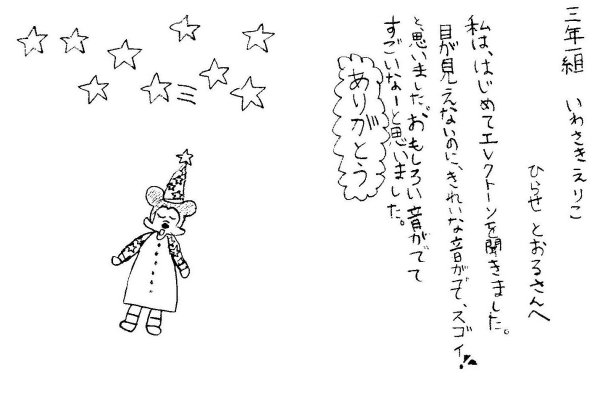 三年一組　いわさきえりこ
ひらせ とおるさんへ
私は、はじめてエレクトーンを聞きました。
目が見えないのに、きれいな音がでて、スゴイ!!
と思いました。おもしろい音がでて
すごいなーと思いました。
ありがとう